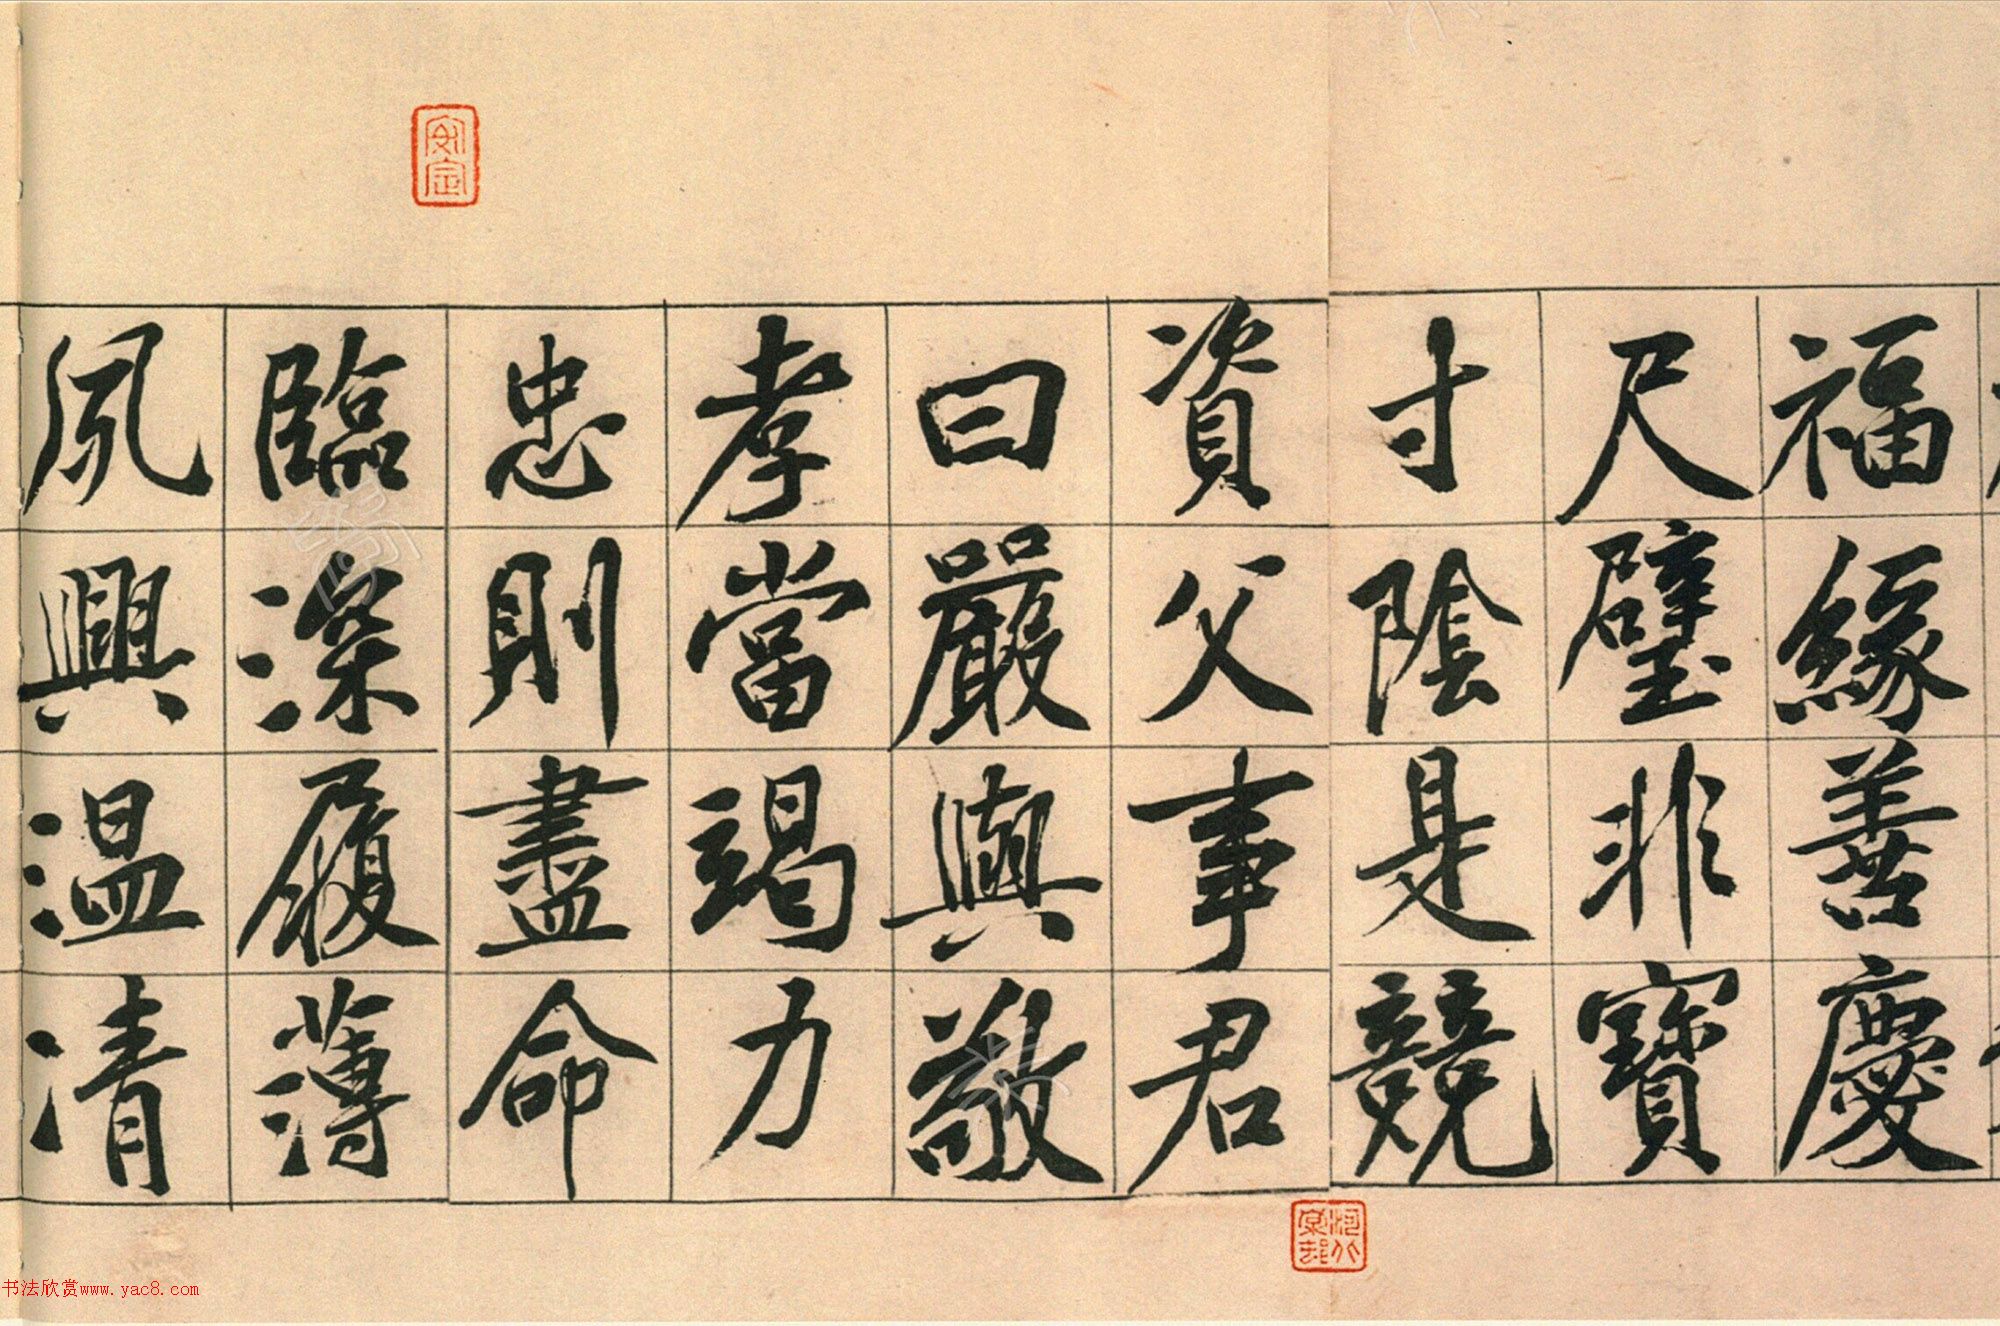 福緣善慶
尺璧非寶
寸陰是競
資父事君
曰嚴與敬
孝當竭力
忠則盡命
臨深履薄
夙興温清
安定
书法欣赏www.yac8.com